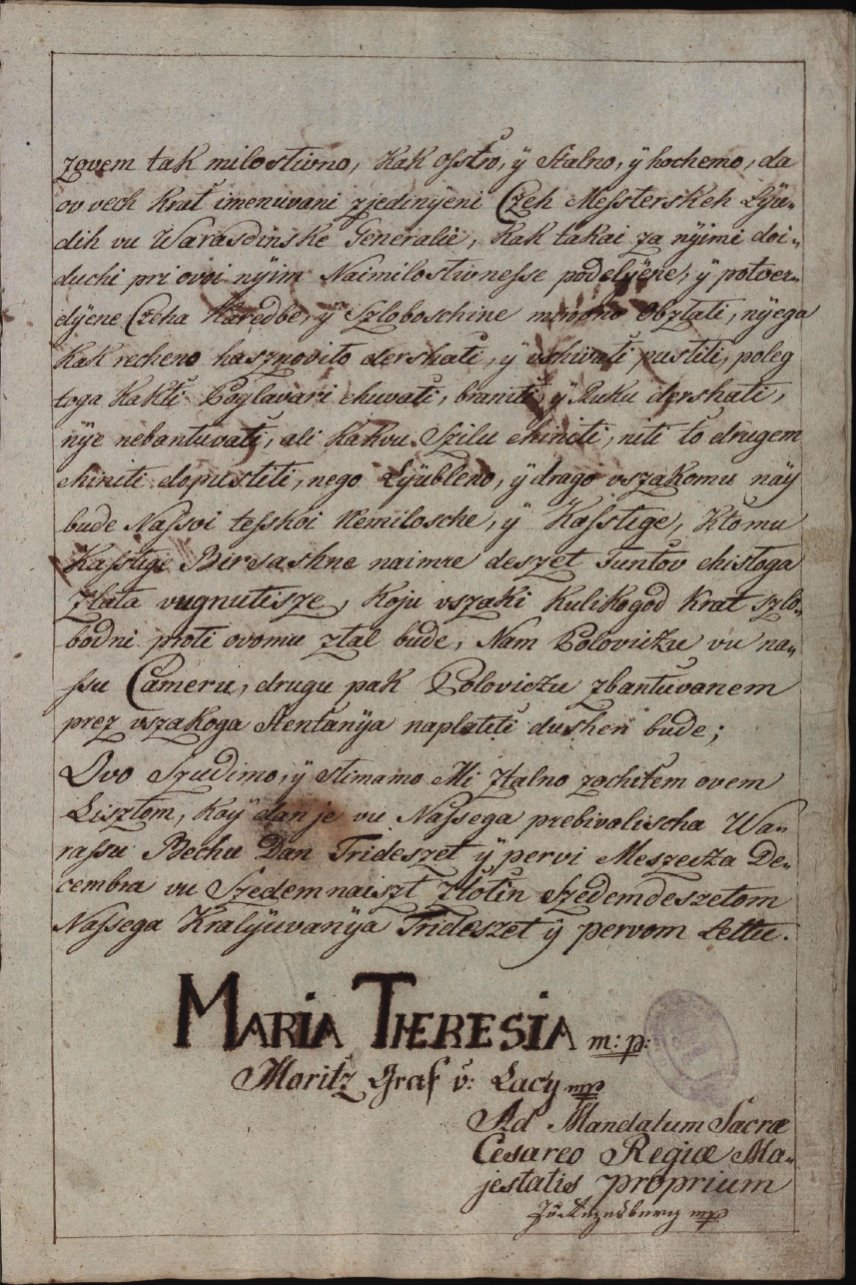 zovem tak milostivno, kak osstro, ÿ stalno, ÿ hochemo, da
ov vech krat imenuvani zjedinÿeni Czeh Messterskeh Lÿu-
dih vu Warasdinske Generalie, kak takai za nÿimi doi-
duchi pri ovoi nÿim Naimilostivnesse podelÿene, ÿ potver-
dÿene Czeha Naredbe, ÿ Szloboschine mirovno obztati, nÿega
kak recheno hasznovito dershati, ÿ vsivati pustiti, poleg
toga kakti Poglavari chuvati, braniti, ÿ Ruku dershati,
nÿe nebantuvati, ali kakvu Szilu chiniti, niti to drugem
chiniti dopustiti, nego Lÿubleno, ÿ drago vszakomu náy
bude Nassoi tesskoi Nemilosche, ÿ Kasstige, Ktomu
Kasstige Birsashne naimre deszet Funtov chistoga
Zlata vugnutisze, koju vszaki kulikogod krat szlo-
bodni proti ovomu ztal bude, Nam Poloviczu vu na-
ssu Cameru, drugu pak Poloviczu zbantuvanem
prez vszakoga stentanÿa naplatiti dushen bude;
Ovo Szudimo, ÿ stimamo Mi ztalno zachitem ovem
Lisztom, koÿ dan je vu Nassega prebivalischa Wa-
rassu Bechu Dan Trideszet ÿ pervi Meszecza De-
cembra vu Szedemnaiszt Ztotin Szedemdeszetom
Nassega Kralÿuvanÿa Trideszet ÿ pervom Lettu.
MARIA THERESIA m: p:
Moritz Graf v: Lacy mp
Ad Mandatum Sacræ
Cesareo Regiæ Ma-
jestatis proprium
mp